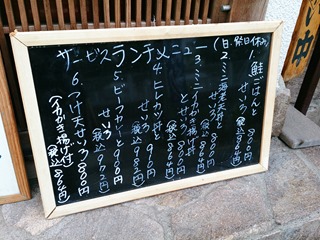 サービスランチメニュー（日、祭日休み）
1. 鮭ごはんと 800円
せいろ （税込）864円
2. ミニ海老天丼と 900円
せいろ
3. ミニイカかき揚げ丼
とせいろ 800円
（税込）864円
4. ヒレカツ丼と 910円
せいろ （税込）982円
5. ビーフカレーと 900円
せいろ （税込）972円
6. つけ天せいろ 800円
（イカかき揚げ付）（税込）864円
中